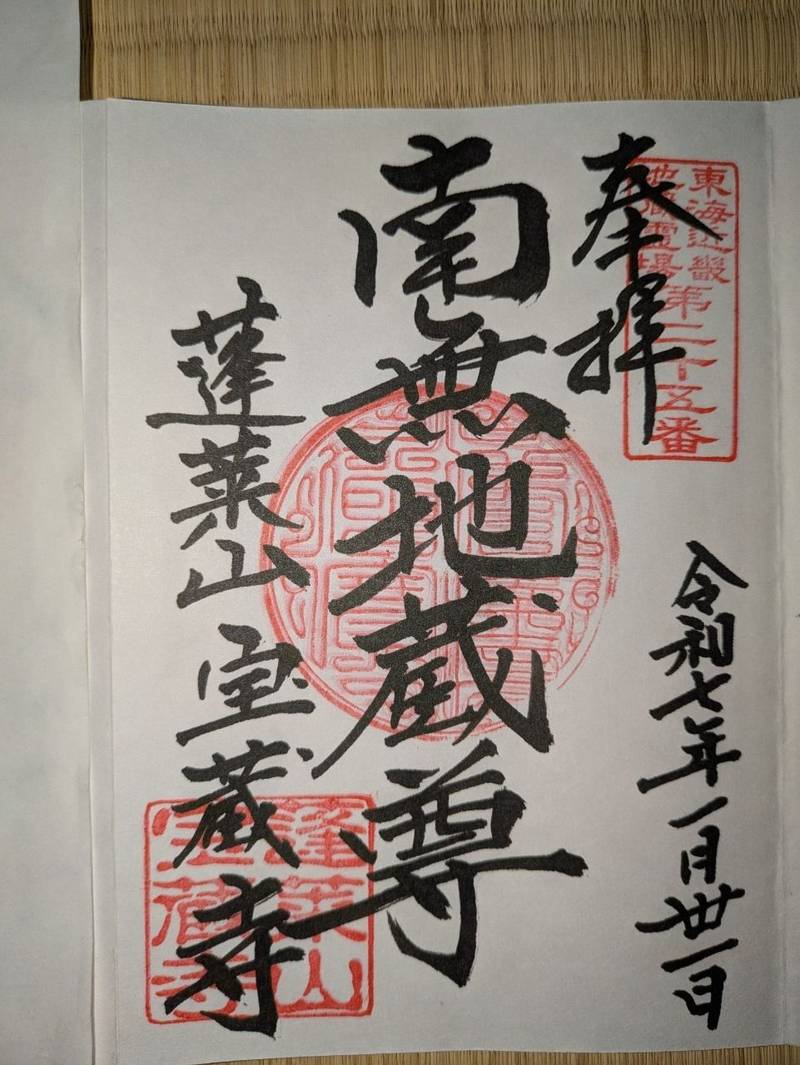 東海近畿
地蔵霊場第二十五番
奉拝
令和七年一月卅一日
南無地蔵尊
蓬莱山 宝蔵寺
蓬莱山
宝蔵寺